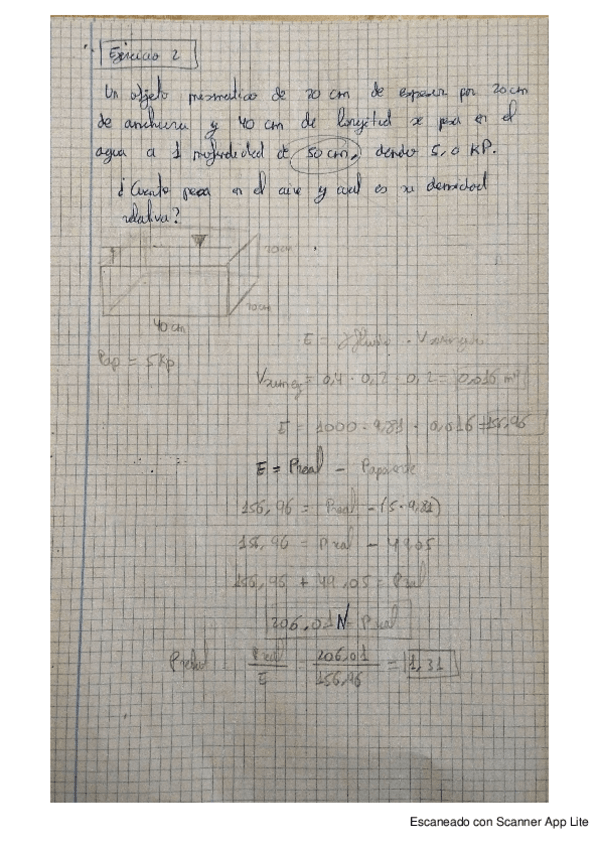 Ejercicio 2
Un objeto prismatico de 20 cm de espesor por 20 cm
de anchura y 40 cm de longitud se pesa en el
agua a 1 profundidad d 50 cm, dando 5,0 KP.
¿Cuanto pesa en el aire y cual es su densidad
relativa?
20 cm
20 cm
40 cm
E = γfluido · Vsumergido
Pap = 5 Kp
Vsumg = 0,4 · 0,2 · 0,2 = 0,016 m³
E = 1000 · 9,81 · 0,016 = 156,96
E = Preal - Paparente
156,96 = Preal - (5·9,81)
156,96 = Preal - 49,05
156,96 + 49,05 = Preal
206,01 N = Preal
Prelat Preal / E = 206,01 / 156,96 = 1,31
Escaneado con Scanner App Lite